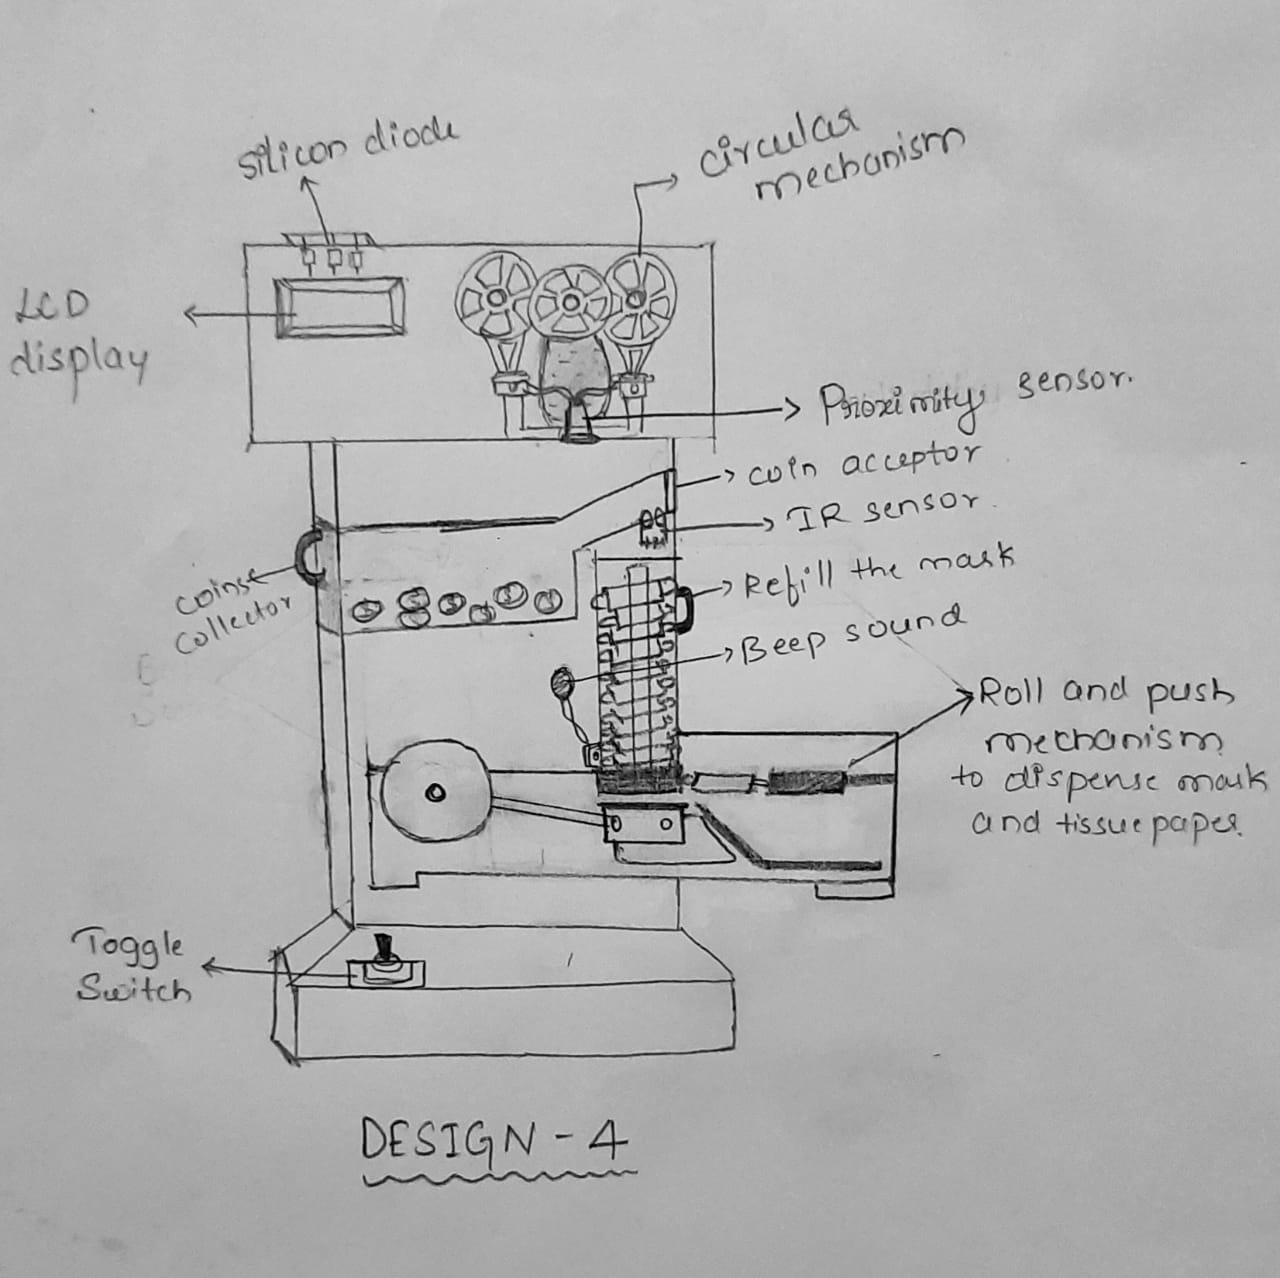 silicon diode
circular
mechanism
LCD
display
Proximity sensor.
coin acceptor
IR sensor.
Refill the mask
coinse
collector
Beep sound
Roll and push
mechanism
to dispense mask
and tissue paper.
Toggle
Switch
DESIGN - 4